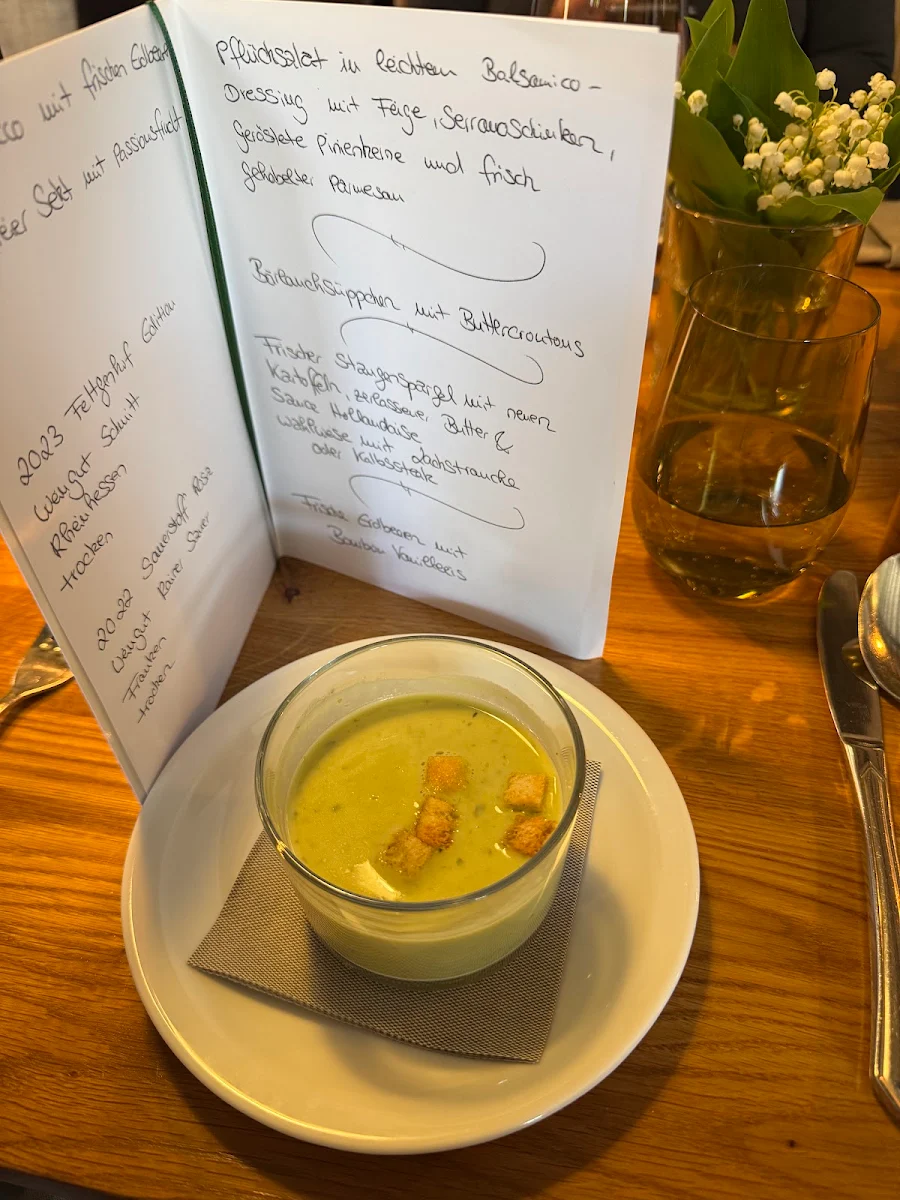 mit frischen Erdbeeren
Sekt mit Passionsfrucht
2023 Fettgenhof Edition
Weingut Schmitt
Rheinhessen
trocken
2022 Sauerstoff Rosé
Weingut Rainer Sauer
Franken
trocken
Pflücksalat in leichtem Balsamico-
Dressing mit Feige, Serranoschinken,
geröstete Pinienkerne und frisch
gehobelter Parmesan
Bärlauchsüppchen mit Buttercroutons
Frischer Stangenspargel mit neuen
Kartoffeln, zerlassene Butter &
Sauce Hollandaise
wahlweise mit Lachstranche
oder Kalbssteak
Frische Erdbeeren mit
Bourbon Vanilleeis